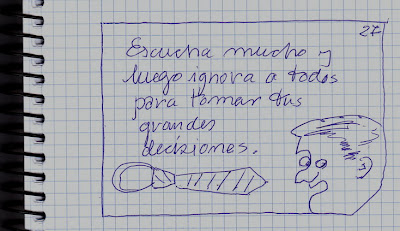 27
Escucha mucho y
luego ignora a todos
para tomar tus
grandes
deciziones.